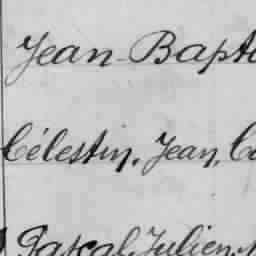 Jean Bapt
Célestin, Jean, C
Pascal, Julien,